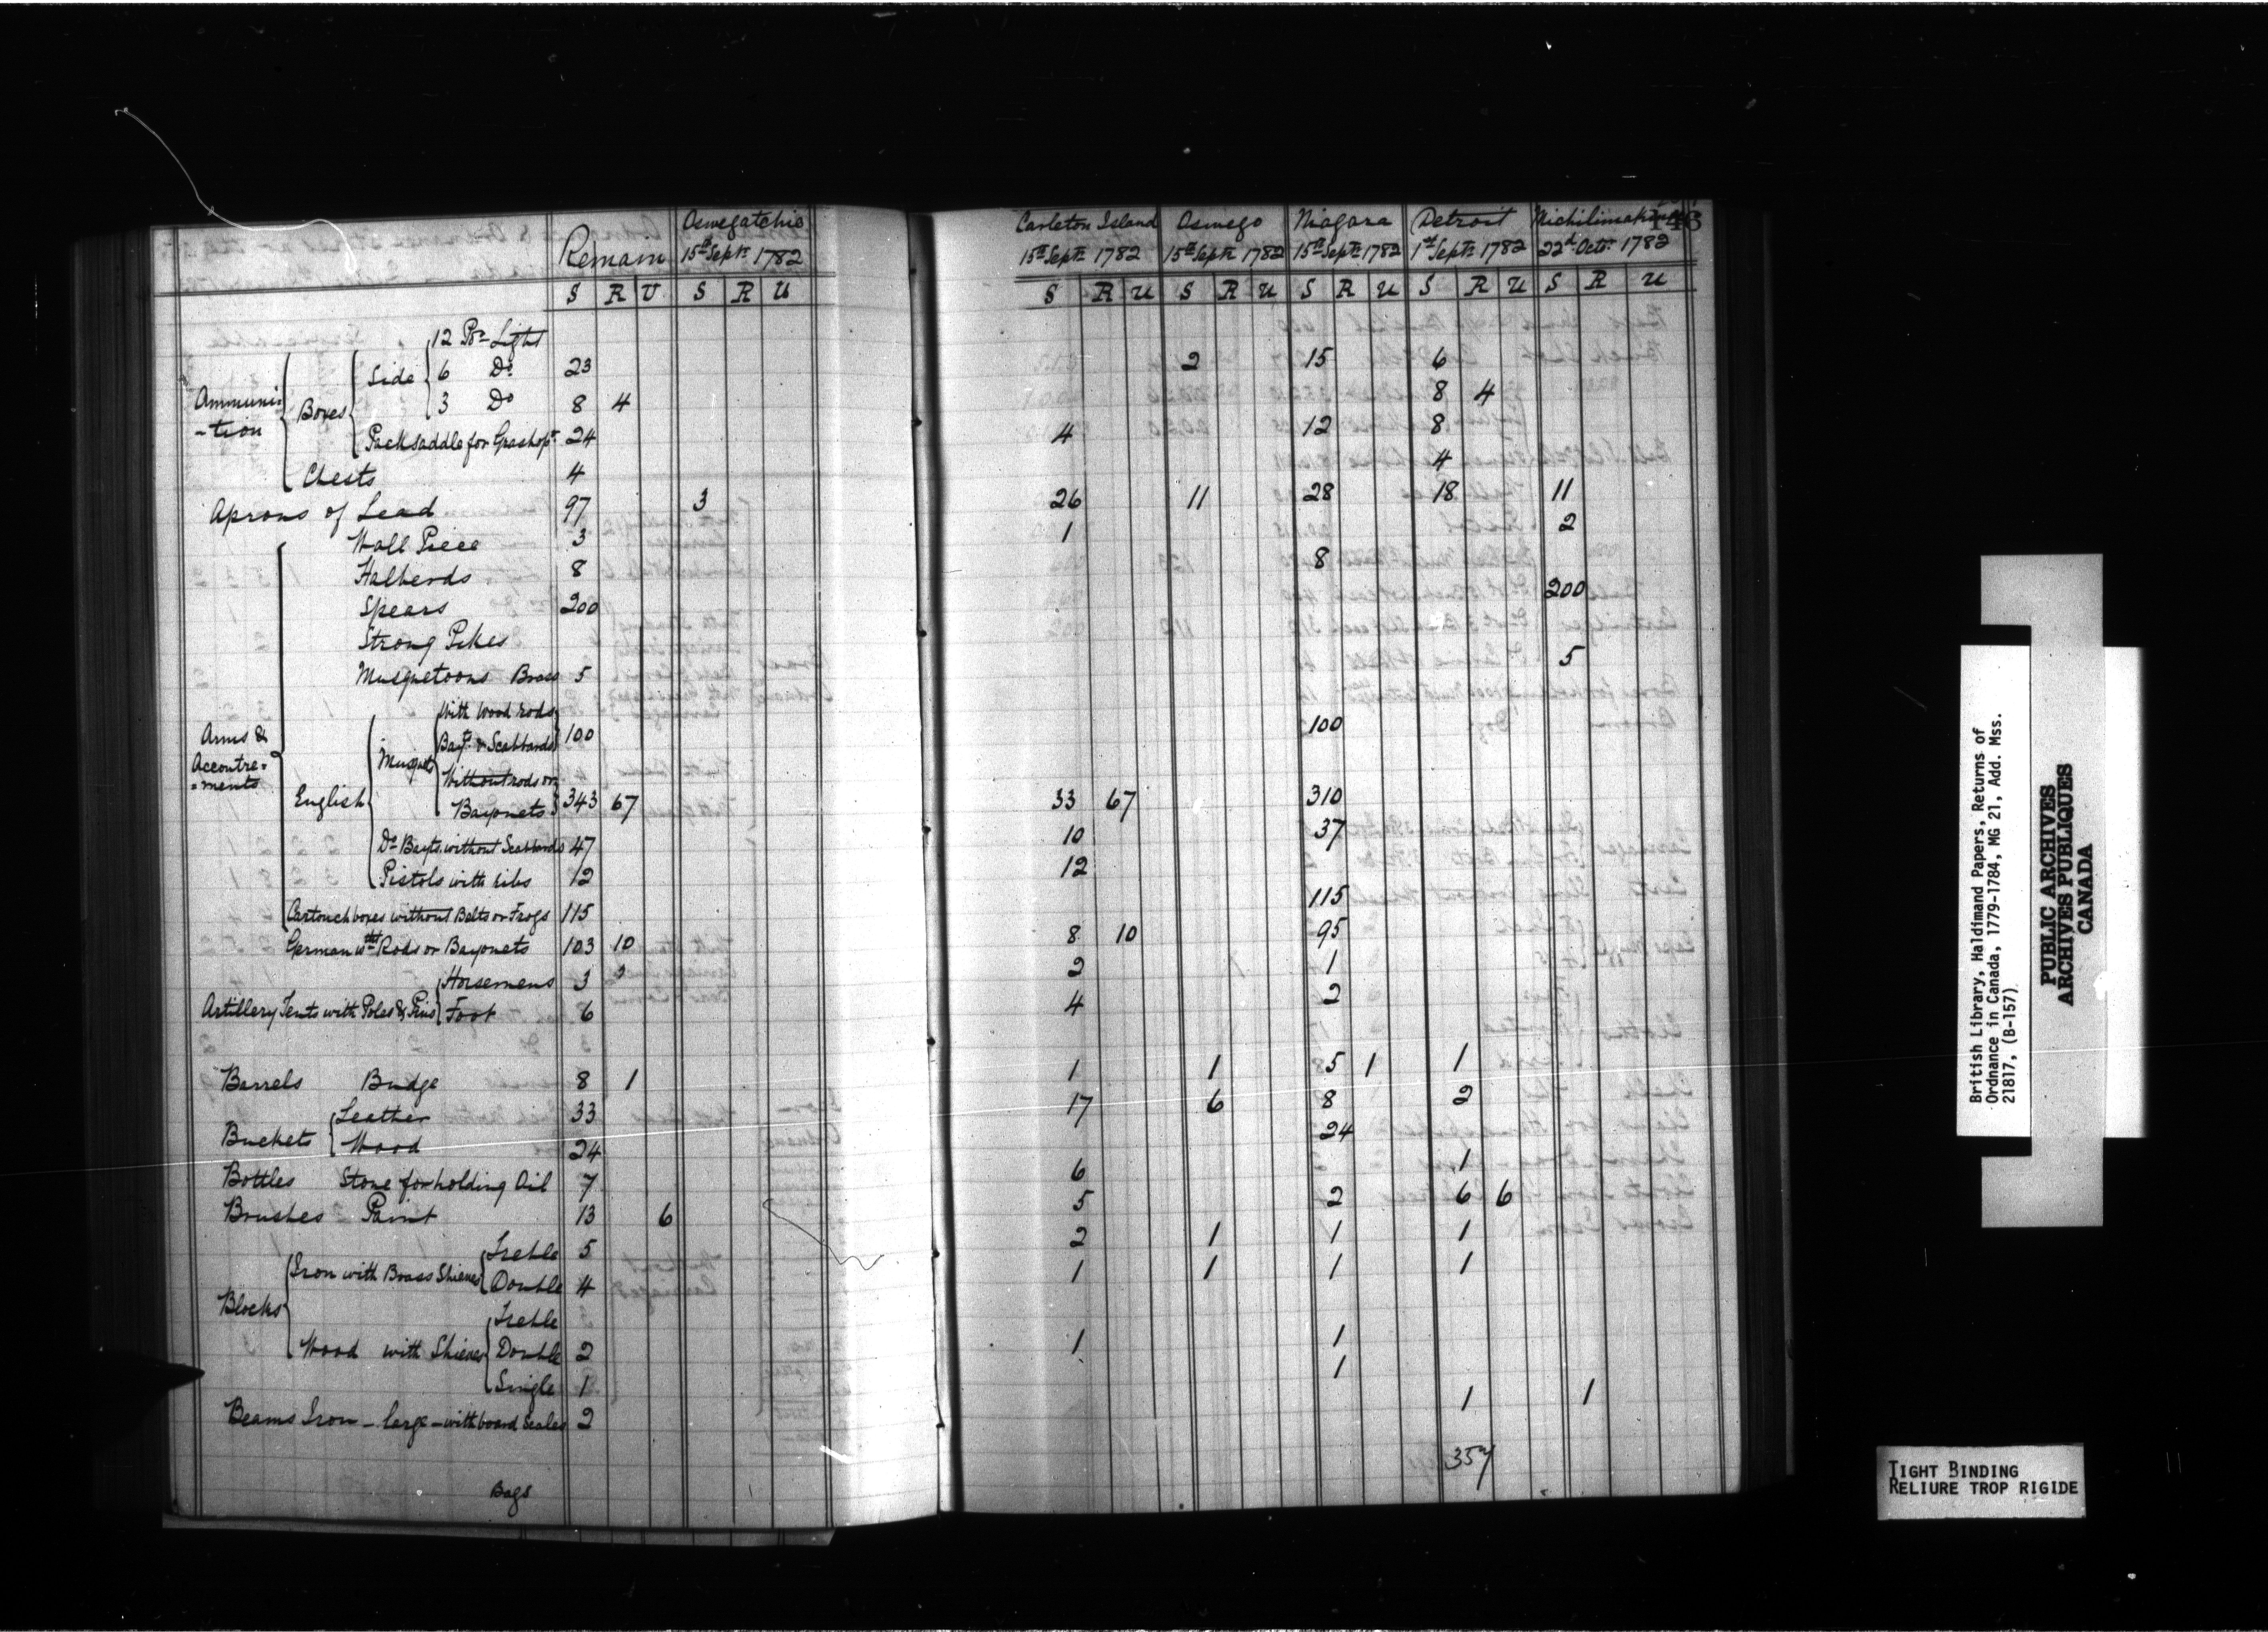 Remain Oswegatchie Carleton Island Oswego Niagara Detroit Michilimakinac 146
15th Septr 1782 15th Septr 1782 15th Septr 1782 15th Septr 1782 1st Septr 1782 22d Octr 1782
S R U S R U S R U S R U S R U S R U S R U
Ammuni-tion Boxes Side 12 Pr Light
6 Do 23 2 15 6
3 Do 8 4 8 4
Packsaddle for Grashopr 24 4 12 8
Chests 4 4
Aprons of Lead 97 3 26 11 28 18 11
Arms & Accoutre=ments Wall Piece 3 1 2
Halberds 8 8
Spears 200 200
Strong Pikes
Musquetoons Brass 5 5
English Musquets With Wood rods
Bayts & Scabbards 100 100
Without rods or
Bayonets 343 67 33 67 310
Do Bayts without Scabbards 47 10 37
Pistols with ribs 12 12
Cartouch boxes without Belts or Frogs 115 115
German wtht Rods or Bayonets 103 10 8 10 95
Artillery Tents with Poles & Pins Horsemens 3 2 1
Foot 6 4 2
Barrels Budge 8 1 1 1 5 1 1
Buckets Leather 33 17 6 8 2
Wood 24 24
Bottles Stone for holding Oil 7 6 1
Brushes Paint 13 6 5 2 6 6
Blocks Iron with Brass Shieves Treble 5 2 1 1 1
Double 4 1 1 1 1
Wood with Shieves Treble
Double 2 1 1
Single 1 1
Beams Iron - large - with board Scales 2 1 1
357
Bags
British Library, Haldimand Papers, Returns of
Ordnance in Canada, 1779-1784, MG 21, Add. Mss.
21817, (B-157)
PUBLIC ARCHIVES
ARCHIVES PUBLIQUES
CANADA
TIGHT BINDING
RELIURE TROP RIGIDE